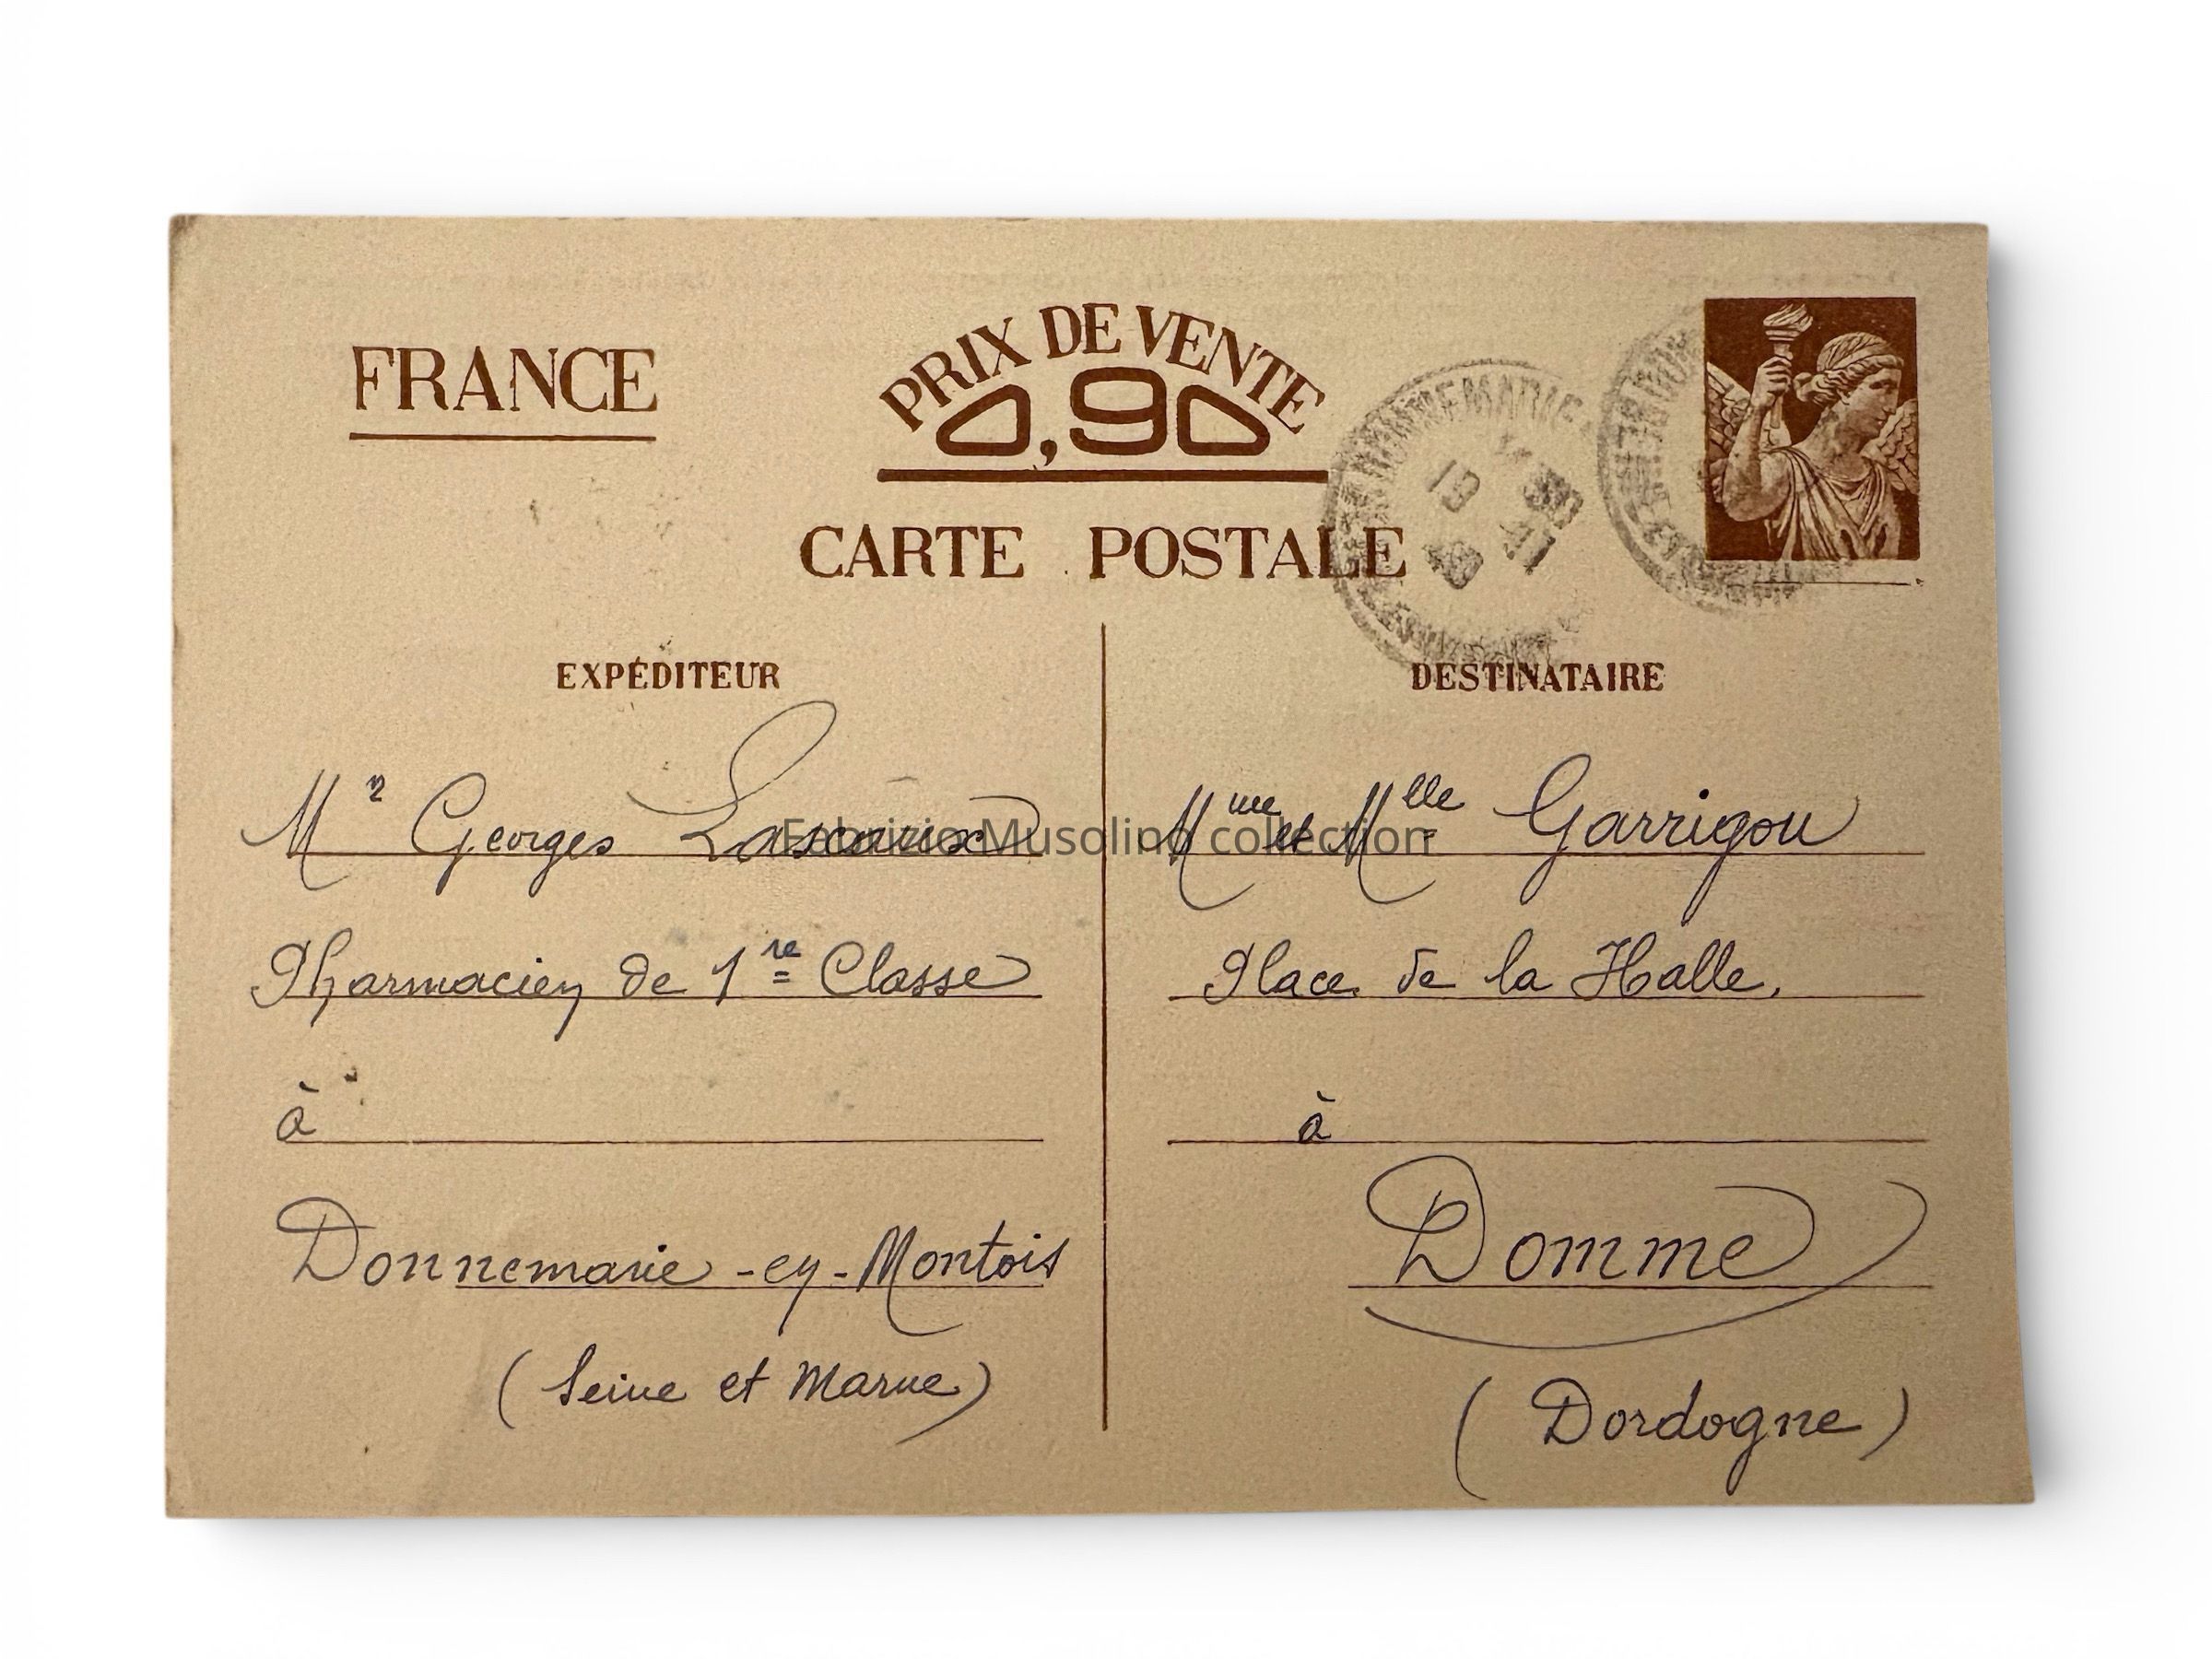 FRANCE
PRIX DE VENTE
0,90
CARTE POSTALE
DONNEMARIE
19
EXPÉDITEUR
DESTINATAIRE
Mr Georges
Pharmacien de 1re Classe
à
Donnemarie-en-Montois
(Seine et Marne)
Mme et Melle Garrigou
Place de la Halle,
à
Domme
(Dordogne)
Fabrizio Musolino collection